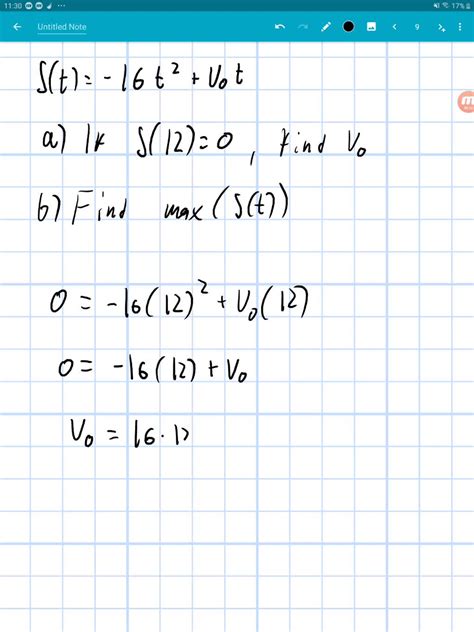 11:30 17%
Untitled Note 9
S(t) = -16t² + V₀t
a) If S(12) = 0, find V₀
b) Find max(S(t))
0 = -16(12)² + V₀(12)
0 = -16(12) + V₀
V₀ = 16·12